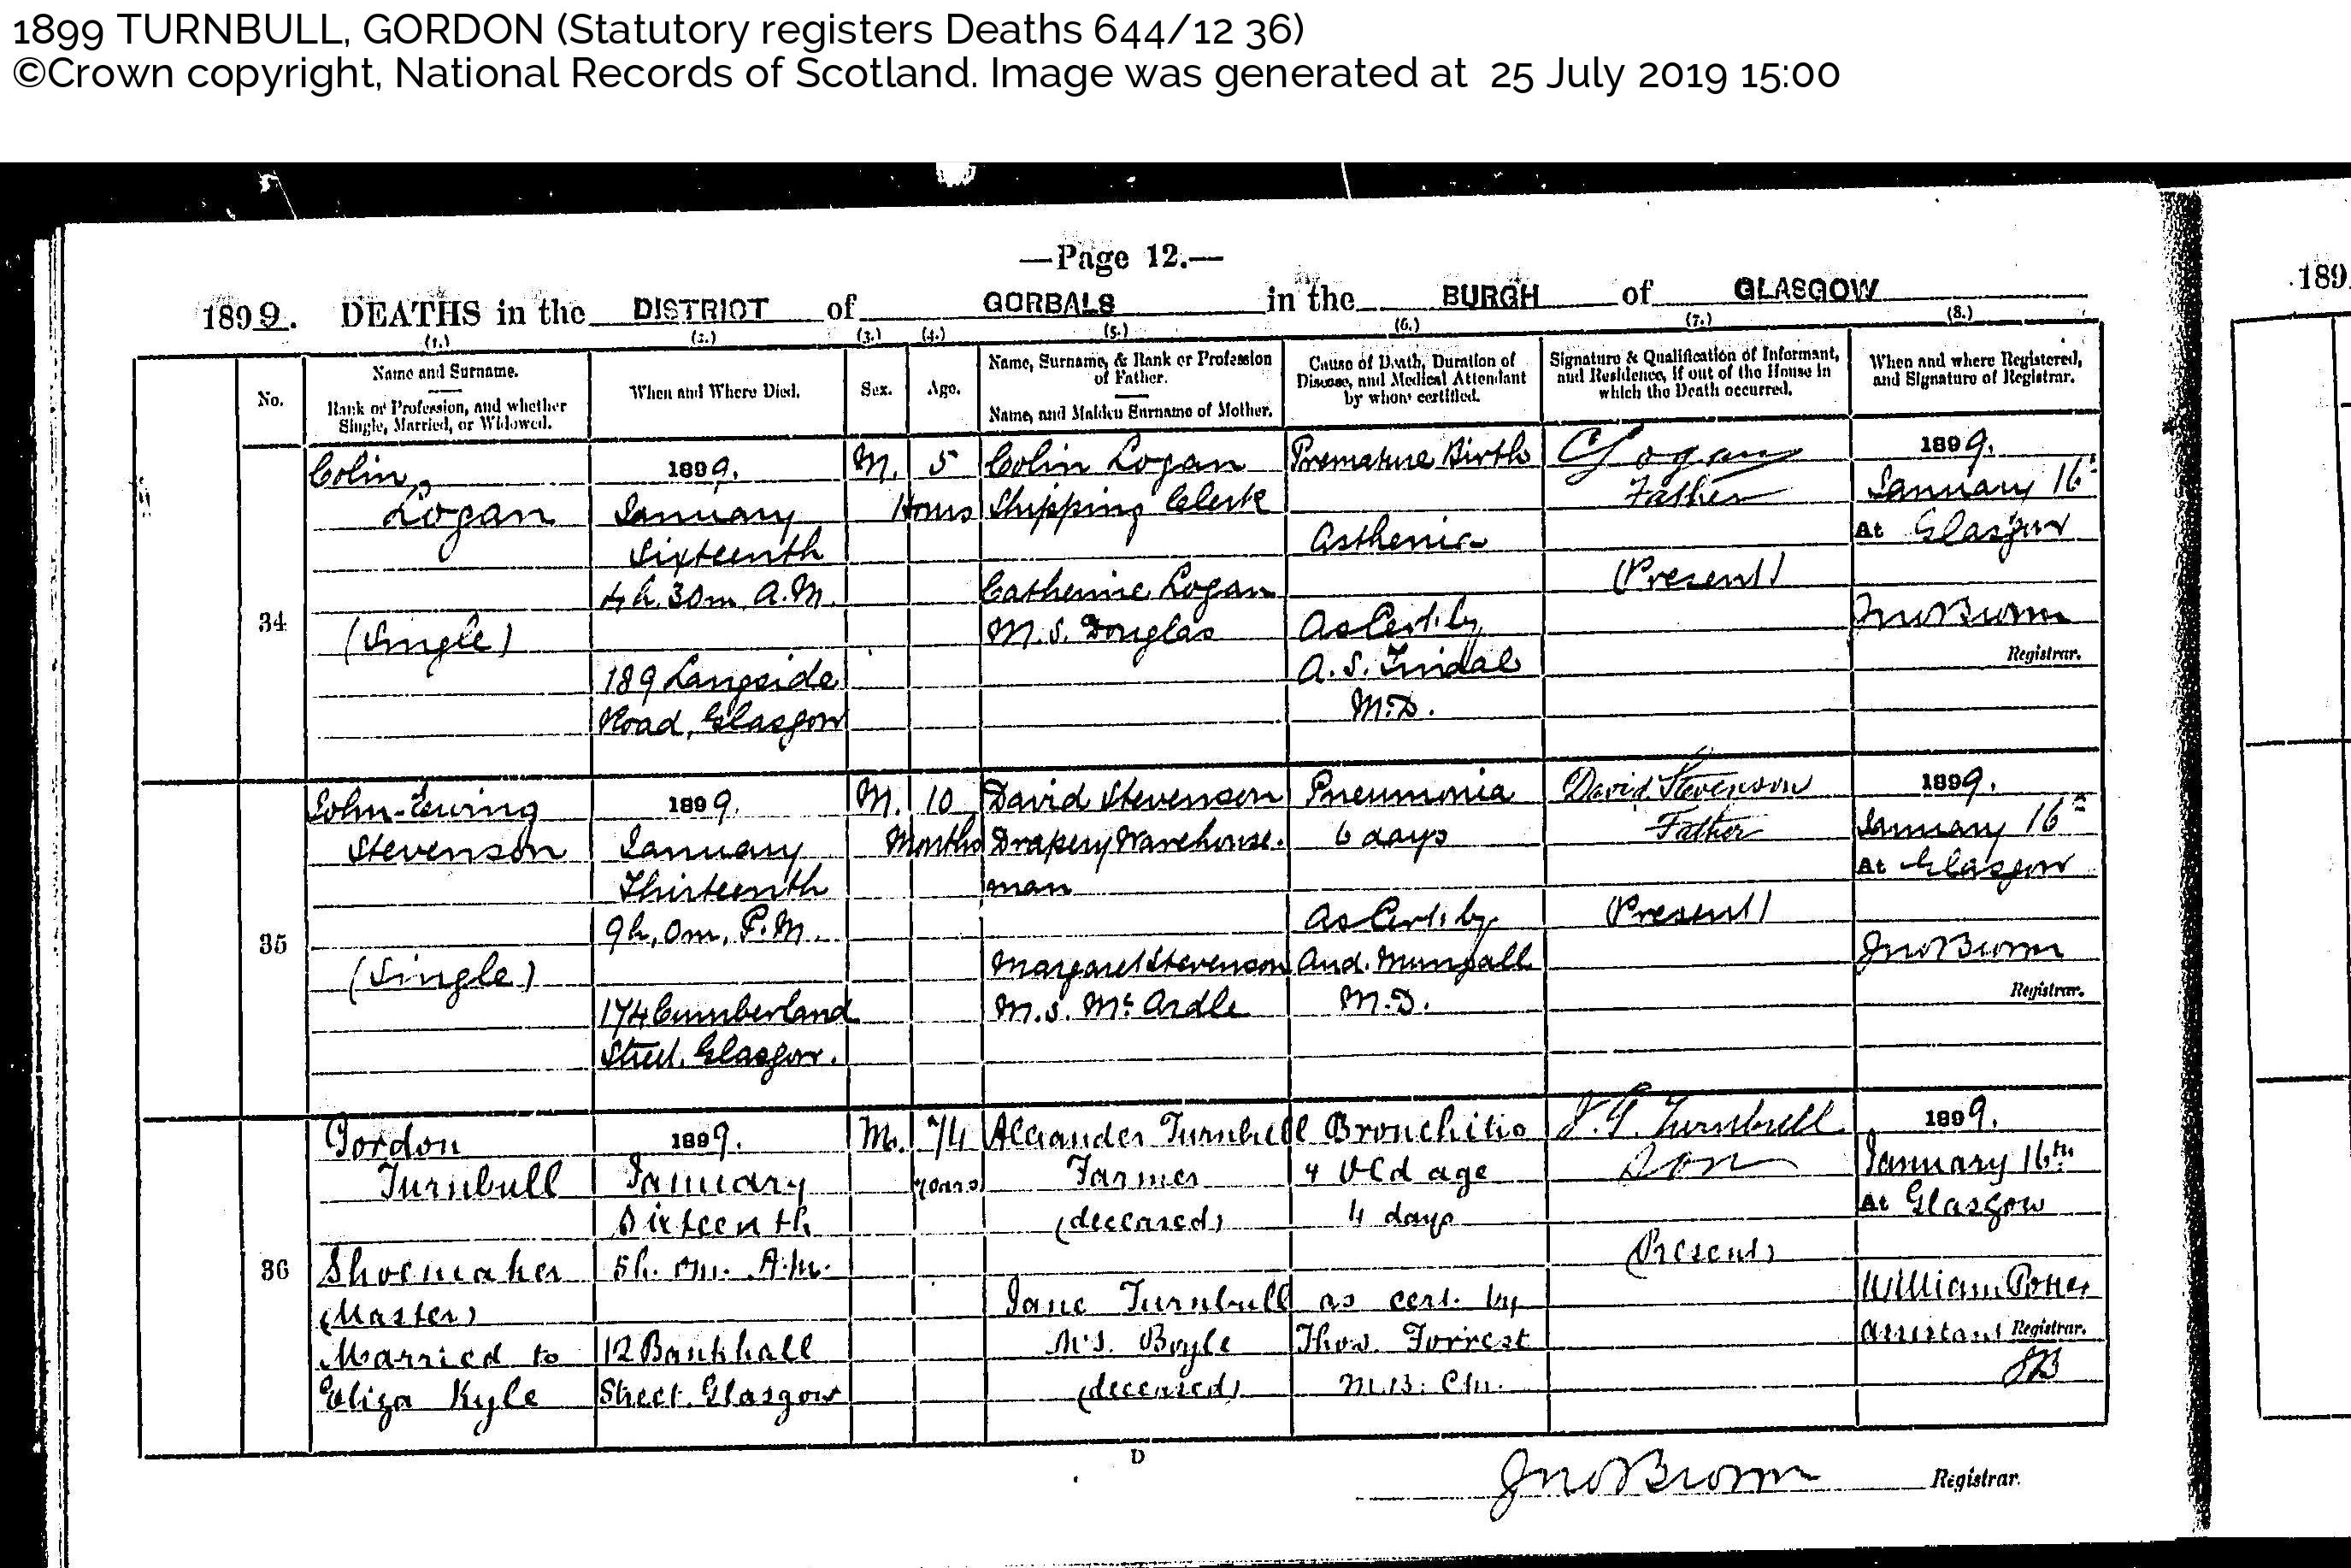 1899 TURNBULL, GORDON (Statutory registers Deaths 644/12 36)
©Crown copyright, National Records of Scotland. Image was generated at 25 July 2019 15:00
—Page 12.—
1899. DEATHS in the DISTRICT of GORBALS in the BURGH of GLASGOW
189
(1.) (2.) (3.) (4.) (5.) (6.) (7.) (8.)
No.
Name and Surname.
Rank or Profession, and whether
Single, Married, or Widowed.
When and Where Died.
Sex.
Age.
Name, Surname, & Rank or Profession
of Father.
Name, and Maiden Surname of Mother.
Cause of Death, Duration of
Disease, and Medical Attendant
by whom certified.
Signature & Qualification of Informant,
and Residence, if out of the House in
which the Death occurred.
When and where Registered,
and Signature of Registrar.
34
Colin
Logan
(Single)
1899.
January
Sixteenth
4h. 30m. A.M.
189 Langside
Road, Glasgow
M.
5
Hours
Colin Logan
Shipping Clerk
Catherine Logan
M.S. Douglas
Premature Birth
Asthenia
As Cert. by
A. S. Tindal
M.D.
C Logan
Father
(Present)
1899.
January 16th
At Glasgow
Jno Brown
Registrar.
35
John Ewing
Stevenson
(Single)
1899.
January
Thirteenth
9h. 0m. P.M.
174 Cumberland
Street, Glasgow.
M.
10
Months
David Stevenson
Drapery Warehouse-
man
Margaret Stevenson
M.S. McArdle
Pneumonia
6 days
As Cert. by
And. Mungall
M.D.
David Stevenson
Father
(Present)
1899.
January 16th
At Glasgow
Jno Brown
Registrar.
36
Gordon
Turnbull
Shoemaker
(Master)
Married to
Eliza Kyle
1899.
January
Sixteenth
5h. 0m. A.M.
12 Bankhall
Street, Glasgow
M.
74
years
Alexander Turnbull
Farmer
(deceased)
Jane Turnbull
M.S. Boyle
(deceased)
Bronchitis
& Old age
4 days
as cert. by
Thos. Forrest
M.B. C.M.
J. G. Turnbull
Son
(Present)
1899.
January 16th
At Glasgow
William Potter
Assistant Registrar.
JB
D
Jno Brown Registrar.